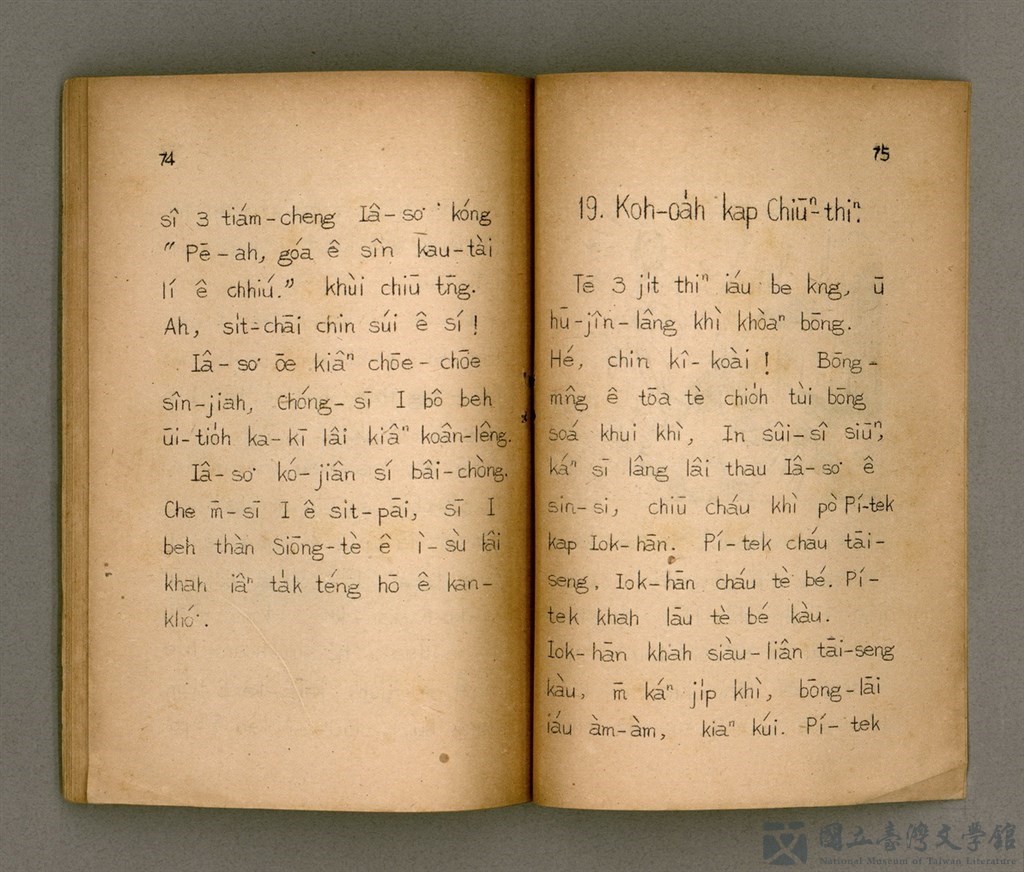 74
sî 3 tiám-cheng Iâ-so͘ kóng
“Pē-ah, góa ê sîn kau-tài
lí ê chhiú.” khùi chiū tn̄g.
Ah, si̍t-chāi chin súi ê sí!
Iâ-so͘ ōe kiâⁿ chōe-chōe
sîn-jiah, chóng-sī I bô beh
ūi-tio̍h ka-kī lâi kiâⁿ koân-lêng.
Iâ-so͘ kò-jiân sí bâi-chòng.
Che m̄-sī I ê sit-pāi, sī I
beh thàn Siōng-tè ê ì-sù lâi
khah iâⁿ ta̍k téng hō ê kan-
khó͘.
75
19. Koh-oa̍h kap Chiūⁿ-thiⁿ.
Tē 3 ji̍t thiⁿ iáu be kng, ū
hū-jîn-lâng khì khòaⁿ bōng.
Hé, chin kî-koài! Bōng-
mn̂g ê tōa tè chio̍h tùi bōng
soá khui khì, In sûi-sî siūⁿ,
káⁿ sī lâng lâi thau Iâ-so͘ ê
sin-si, chiū cháu khì pò Pí-tek
kap Iok-hān. Pí-tek cháu tāi-
seng, Iok-hān cháu tè bé. Pí-
tek khah lāu tè bé kàu.
Iok-hān khah siàu-liân tāi-seng
kàu, m̄ káⁿ ji̍p khì, bōng-lāi
iáu àm-àm, kiaⁿ kúi. Pí-tek
國立臺灣文學館
National Museum of Taiwan Literature